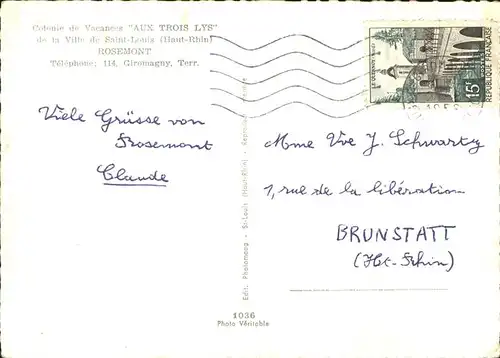 Colonie de Vacances "AUX TROIS LYS"
de la Ville de Saint-Louis (Haut-Rhin)
ROSEMONT
Téléphone: 114, Giromagny, Terr.
Viele Grüsse von
Rosemont
Claude
15F
Mme Vve J. Schwartz
1, rue de la libération
BRUNSTATT
(Ht-Rhin)
St-Louis (Haut-Rhin)
1036
Photo Véritable